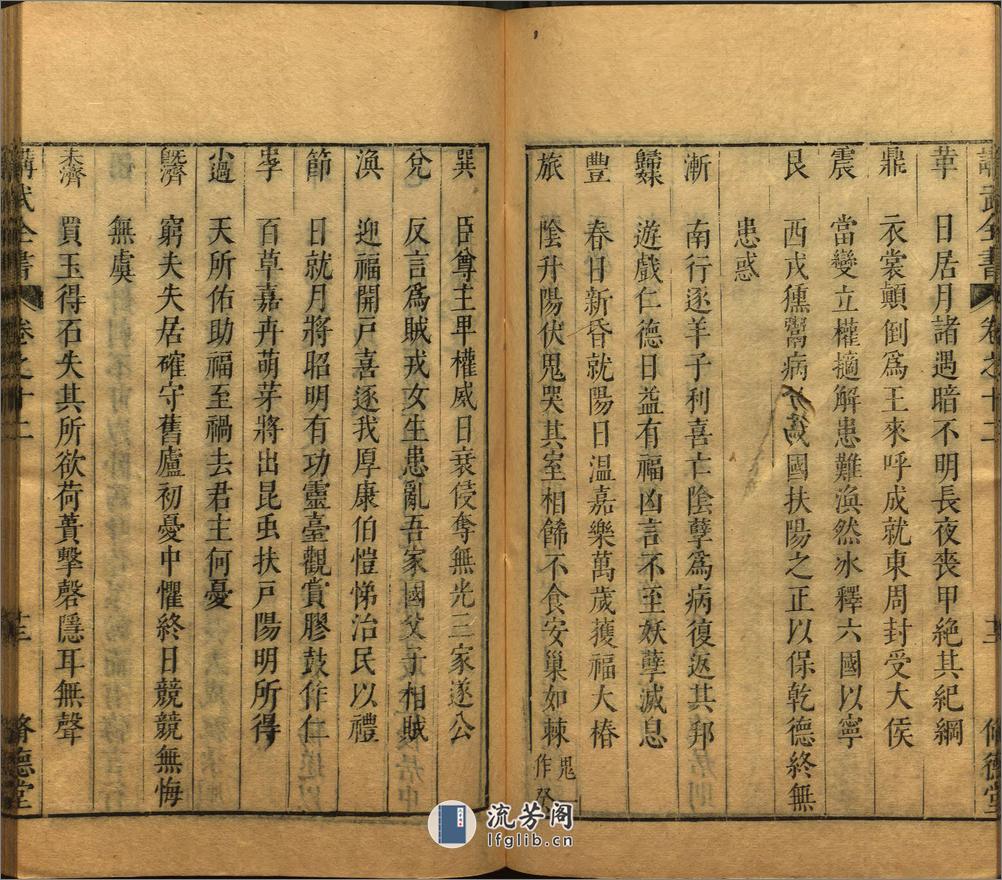 講武全書 卷之十二 脩德堂
革 日居月諸遇暗不明長夜喪甲絕其紀綱
鼎 衣裳顛倒爲王來呼成就東周封受大侯
震 當變立權擿解患難渙然冰釋六國以寧
艮 西戎獯鬻病 國扶陽之正以保乾德終無
患惑
漸 南行逐羊子利喜亡陰孽爲病復返其邦
歸妹 遊戲仁德日益有福凶言不至妖孽滅息
豐 春日新昏就陽日温嘉樂萬歲獲福大椿
旅 陰升陽伏鬼哭其室相餙不食安巢如棘 鬼一作癸
巽 臣尊主卑權威日衰侵奪無光三家遂公
兌 反言爲賊戎女生患亂吾家國父子相賊
渙 迎福開戸喜逐我厚康伯愷悌治民以禮
節 日就月將昭明有功靈臺觀賞膠鼓作仁
孚 百草嘉卉萌芽將出昆虫扶戸陽明所得
小過 天所佑助福至禍去君主何憂
旣濟 窮夫失居確守舊廬初憂中懼終日競競無悔
無虞
未濟 買玉得石失其所欲荷蕢擊磬隱耳無聲
講武全書 卷之十二 脩德堂
流芳阁
lfglib.cn